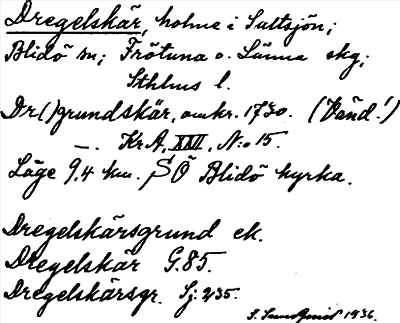 Dregelskär, holme i Saltsjön;
Blidö sn; Frötuna o. Länna skg;
Sthlms l.
Dr()grundskär, omkr. 1730. (Vänd!)
—. Kr.A, XXII, N:o 15.
Läge 9,4 km. SÖ Blidö kyrka.
Dregelskärsgrund ek.
Dregelskär G.85.
Dregelskärsgr. Sj. 235.
1936.